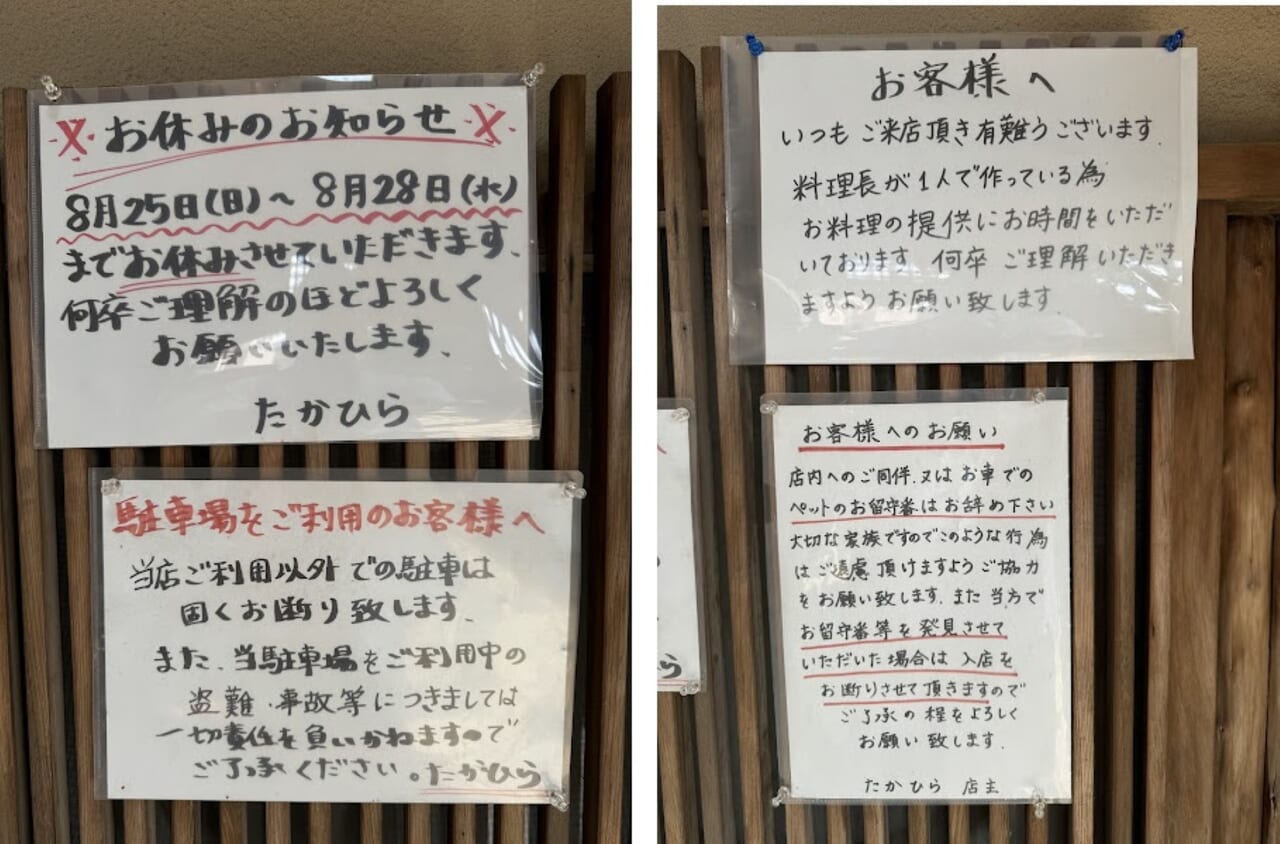 お休みのお知らせ
8月25日(日)~8月28日(水)
までお休みさせていただきます、
何卒ご理解のほどよろしく
お願いいたします、
たかひら
駐車場をご利用のお客様へ
当店ご利用以外での駐車は
固くお断り致します、
また、当駐車場をご利用中の
盗難・事故等につきましては
一切責任を負いかねますので
ご了承ください。たかひら
お客様へ
いつもご来店頂き有難うございます.
料理長が1人で作っている為
お料理の提供にお時間をいただ
いております。何卒ご理解いただき
ますようお願い致します.
お客様へのお願い
店内へのご同伴、又はお車での
ペットのお留守番はお辞め下さい
大切な家族ですのでこのような行為
はご遠慮頂けますようご協力
をお願い致します、また当方で
お留守番等を発見させて
いただいた場合は入店を
お断りさせて頂きますので
ご了承の程をよろしく
お願い致します.
たかひら 店主
ら